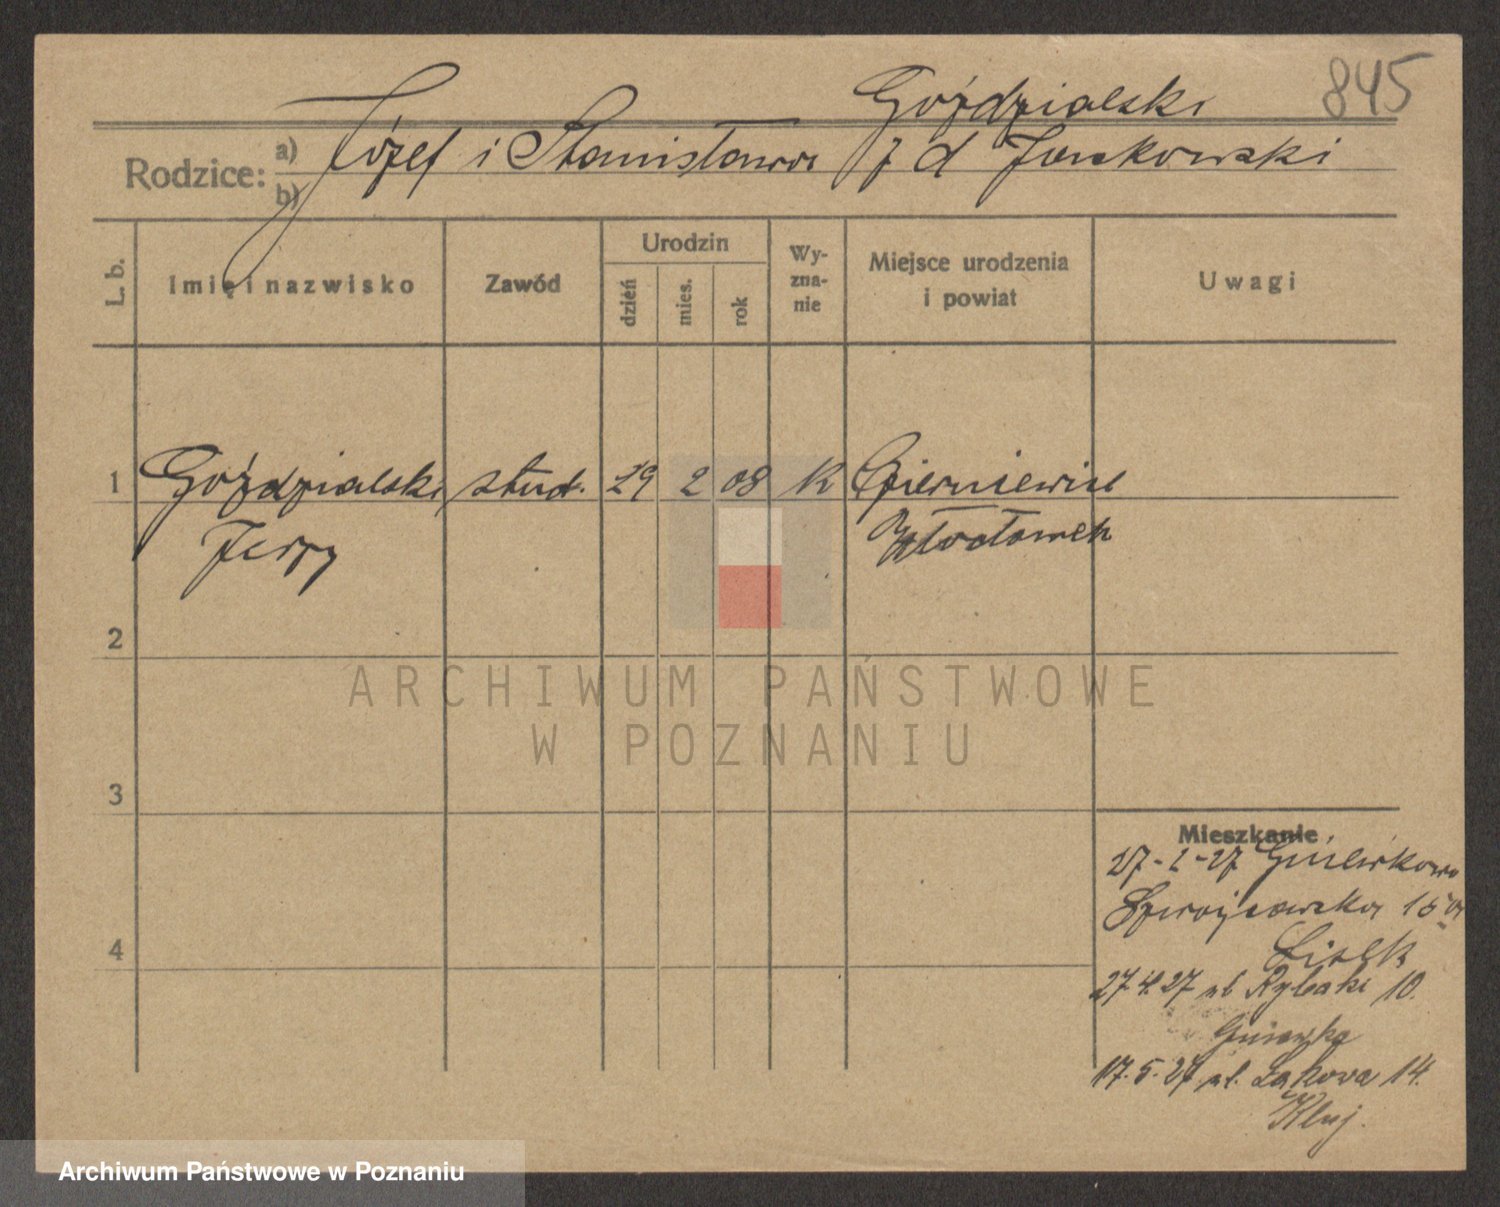 845
Goździalski
Józef i Stanisława z d Jankowski
Rodzice: a)
b)
L. b.
Imię i nazwisko
Zawód
Urodzin
dzień
mies.
rok
Wy-
zna-
nie
Miejsce urodzenia
i powiat
Uwagi
1 Goździalski stud. 29 2 08 K Czerniewice
Jerzy Włocławek
2
ARCHIWUM PAŃSTWOWE
W POZNANIU
3
Mieszkanie
27-1-27 Gniewkowo
15a
4
27.4.27 ul Rybaki 10.
17.5.27 ul. Łąkowa 14.
Archiwum Państwowe w Poznaniu